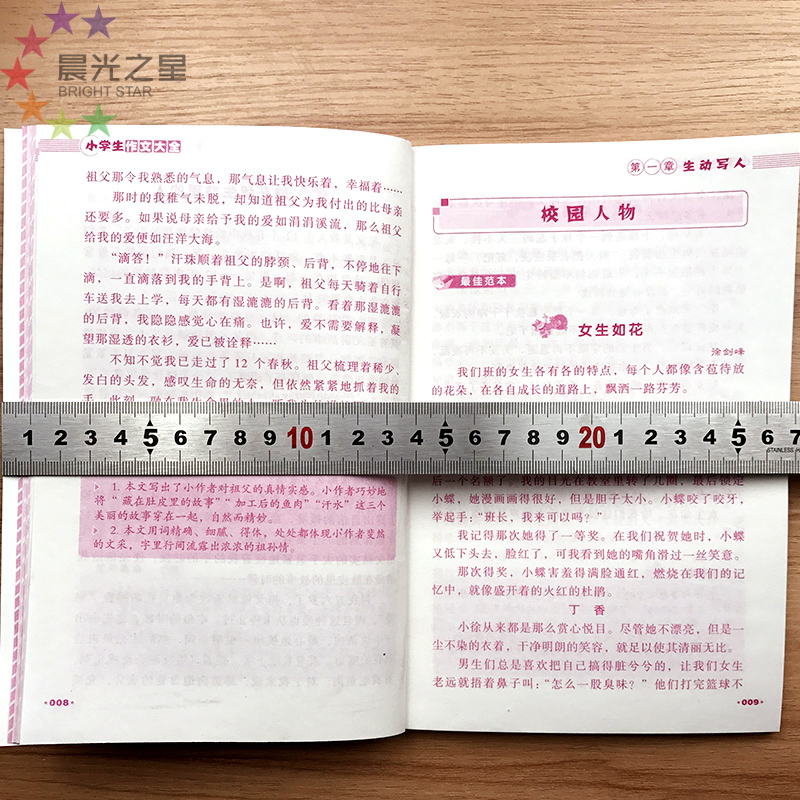 晨光之星
BRIGHT STAR
小学生作文大全
祖父那令我熟悉的气息，那气息让我快乐着，幸福着……
那时的我稚气未脱，却知道祖父为我付出的比母亲
还要多。如果说母亲给予我的爱如涓涓溪流，那么祖父
给我的爱便如汪洋大海。
“滴答！”汗珠顺着祖父的脖颈、后背，不停地往下
滴，一直滴落到我的手背上。是啊，祖父每天骑着自行
车送我去上学，每天都有湿漉漉的后背。看着那湿漉漉
的后背，我隐隐感觉心在痛。也许，爱不需要解释，凝
望那湿透的衣衫，爱已被诠释……
不知不觉我已走过了 12 个春秋。祖父梳理着稀少、
发白的头发，感叹生命的无奈，但依然紧紧地抓着我的
1. 本文写出了小作者对祖父的真情实感。小作者巧妙地
将“藏在肚皮里的故事”“加工后的鱼肉”“汗水”这三个
美丽的故事穿在一起，自然而精妙。
2. 本文用词精确、细腻、得体，处处都体现小作者斐然
的文采，字里行间流露出浓浓的祖孙情。
008
第一章 生动写人
校园人物
最佳范本
女生如花
涂剑峰
我们班的女生各有各的特点，每个人都像含苞待放
的花朵，在各自成长的道路上，飘洒一路芬芳。
1 2 3 4 5 6 7 8 9 10 1 2 3 4 5 6 7 8 9 20 1 2 3 4 5 6 7
STAINLESS
后一个名额了。我的目光在教室里转了几圈，最后锁定
小蝶，她漫画画得很好，但是胆子太小。小蝶咬了咬牙，
举起手：“班长，我来可以吗？”
我记得那次她得了一等奖。在我们祝贺她时，小蝶
又低下头去，脸红了，可我看到她的嘴角滑过一丝笑意。
那次得奖，小蝶害羞得满脸通红，燃烧在我们的记
忆中，就像盛开着的火红的杜鹃。
丁 香
小徐从来都是那么赏心悦目。尽管她不漂亮，但是一
尘不染的衣着，干净明朗的笑容，就足以使其清丽无比。
男生们总是喜欢把自己搞得脏兮兮的，让我们女生
老远就捂着鼻子叫：“怎么一股臭味？”他们打完篮球不
009